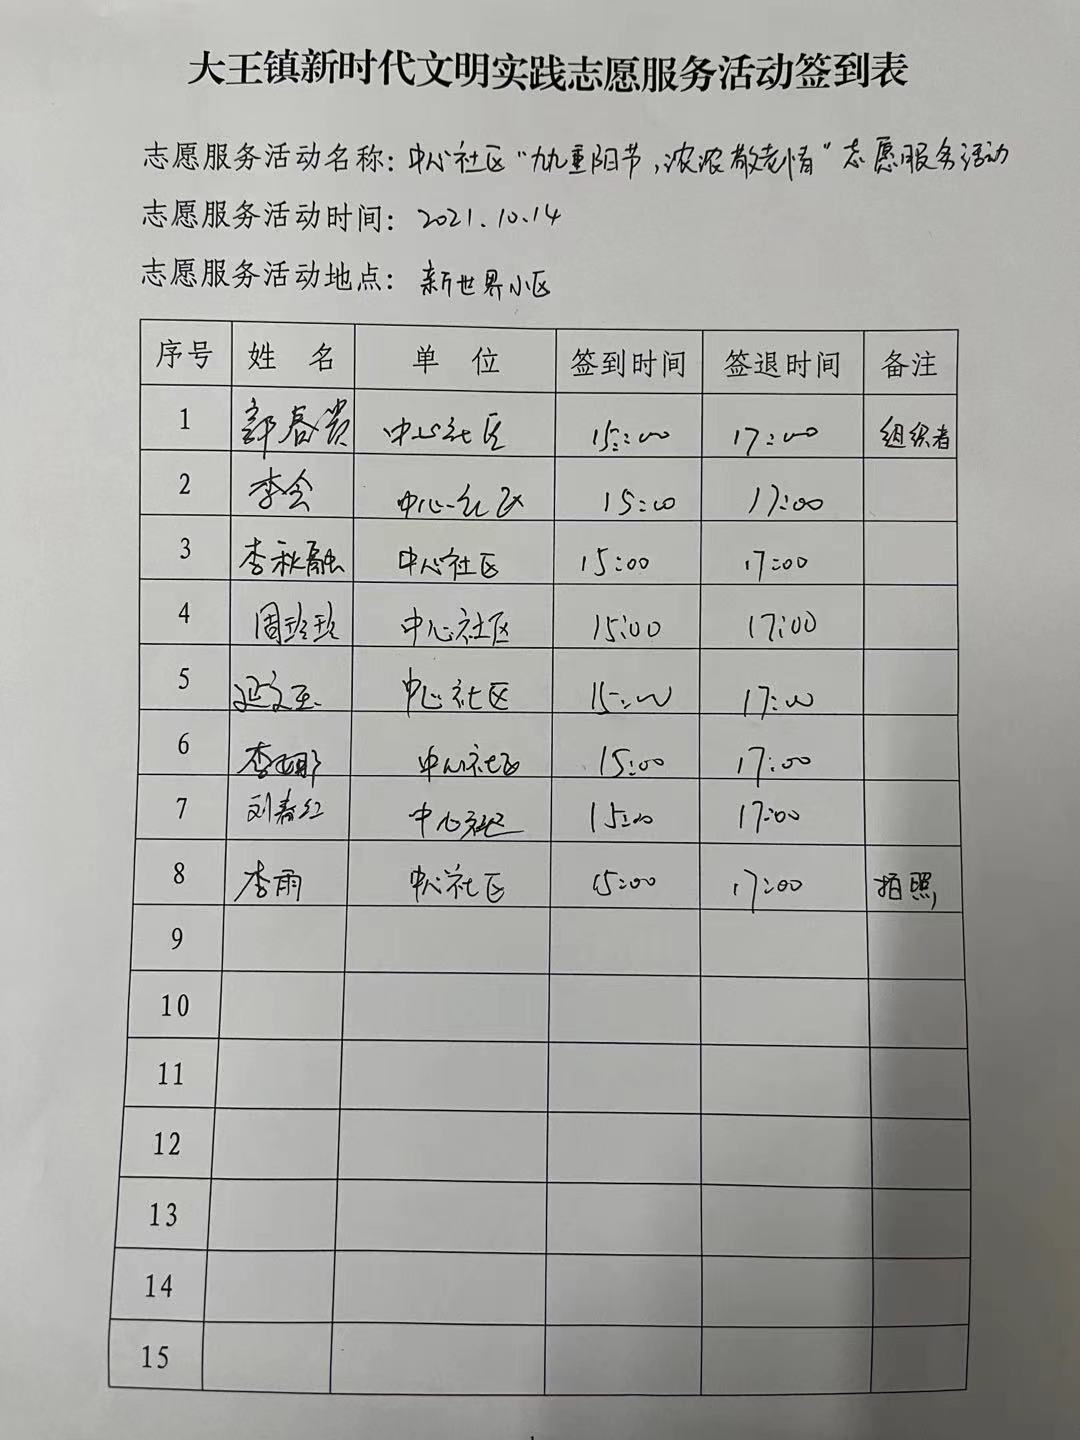 大王镇新时代文明实践志愿服务活动签到表
志愿服务活动名称：中心社区“九九重阳节，浓浓敬老情”志愿服务活动
志愿服务活动时间：2021.10.14
志愿服务活动地点：新世界小区
序号 姓 名 单 位 签到时间 签退时间 备注
1 郭春贵 中心社区 15:00 17:00 组织者
2 李会 中心社区 15:00 17:00
3 李秋融 中心社区 15:00 17:00
4 周玲玲 中心社区 15:00 17:00
5 中心社区 15:00 17:00
6 李娜 中心社区 15:00 17:00
7 刘春红 中心社区 15:00 17:00
8 李雨 中心社区 15:00 17:00 拍照
9
10
11
12
13
14
15